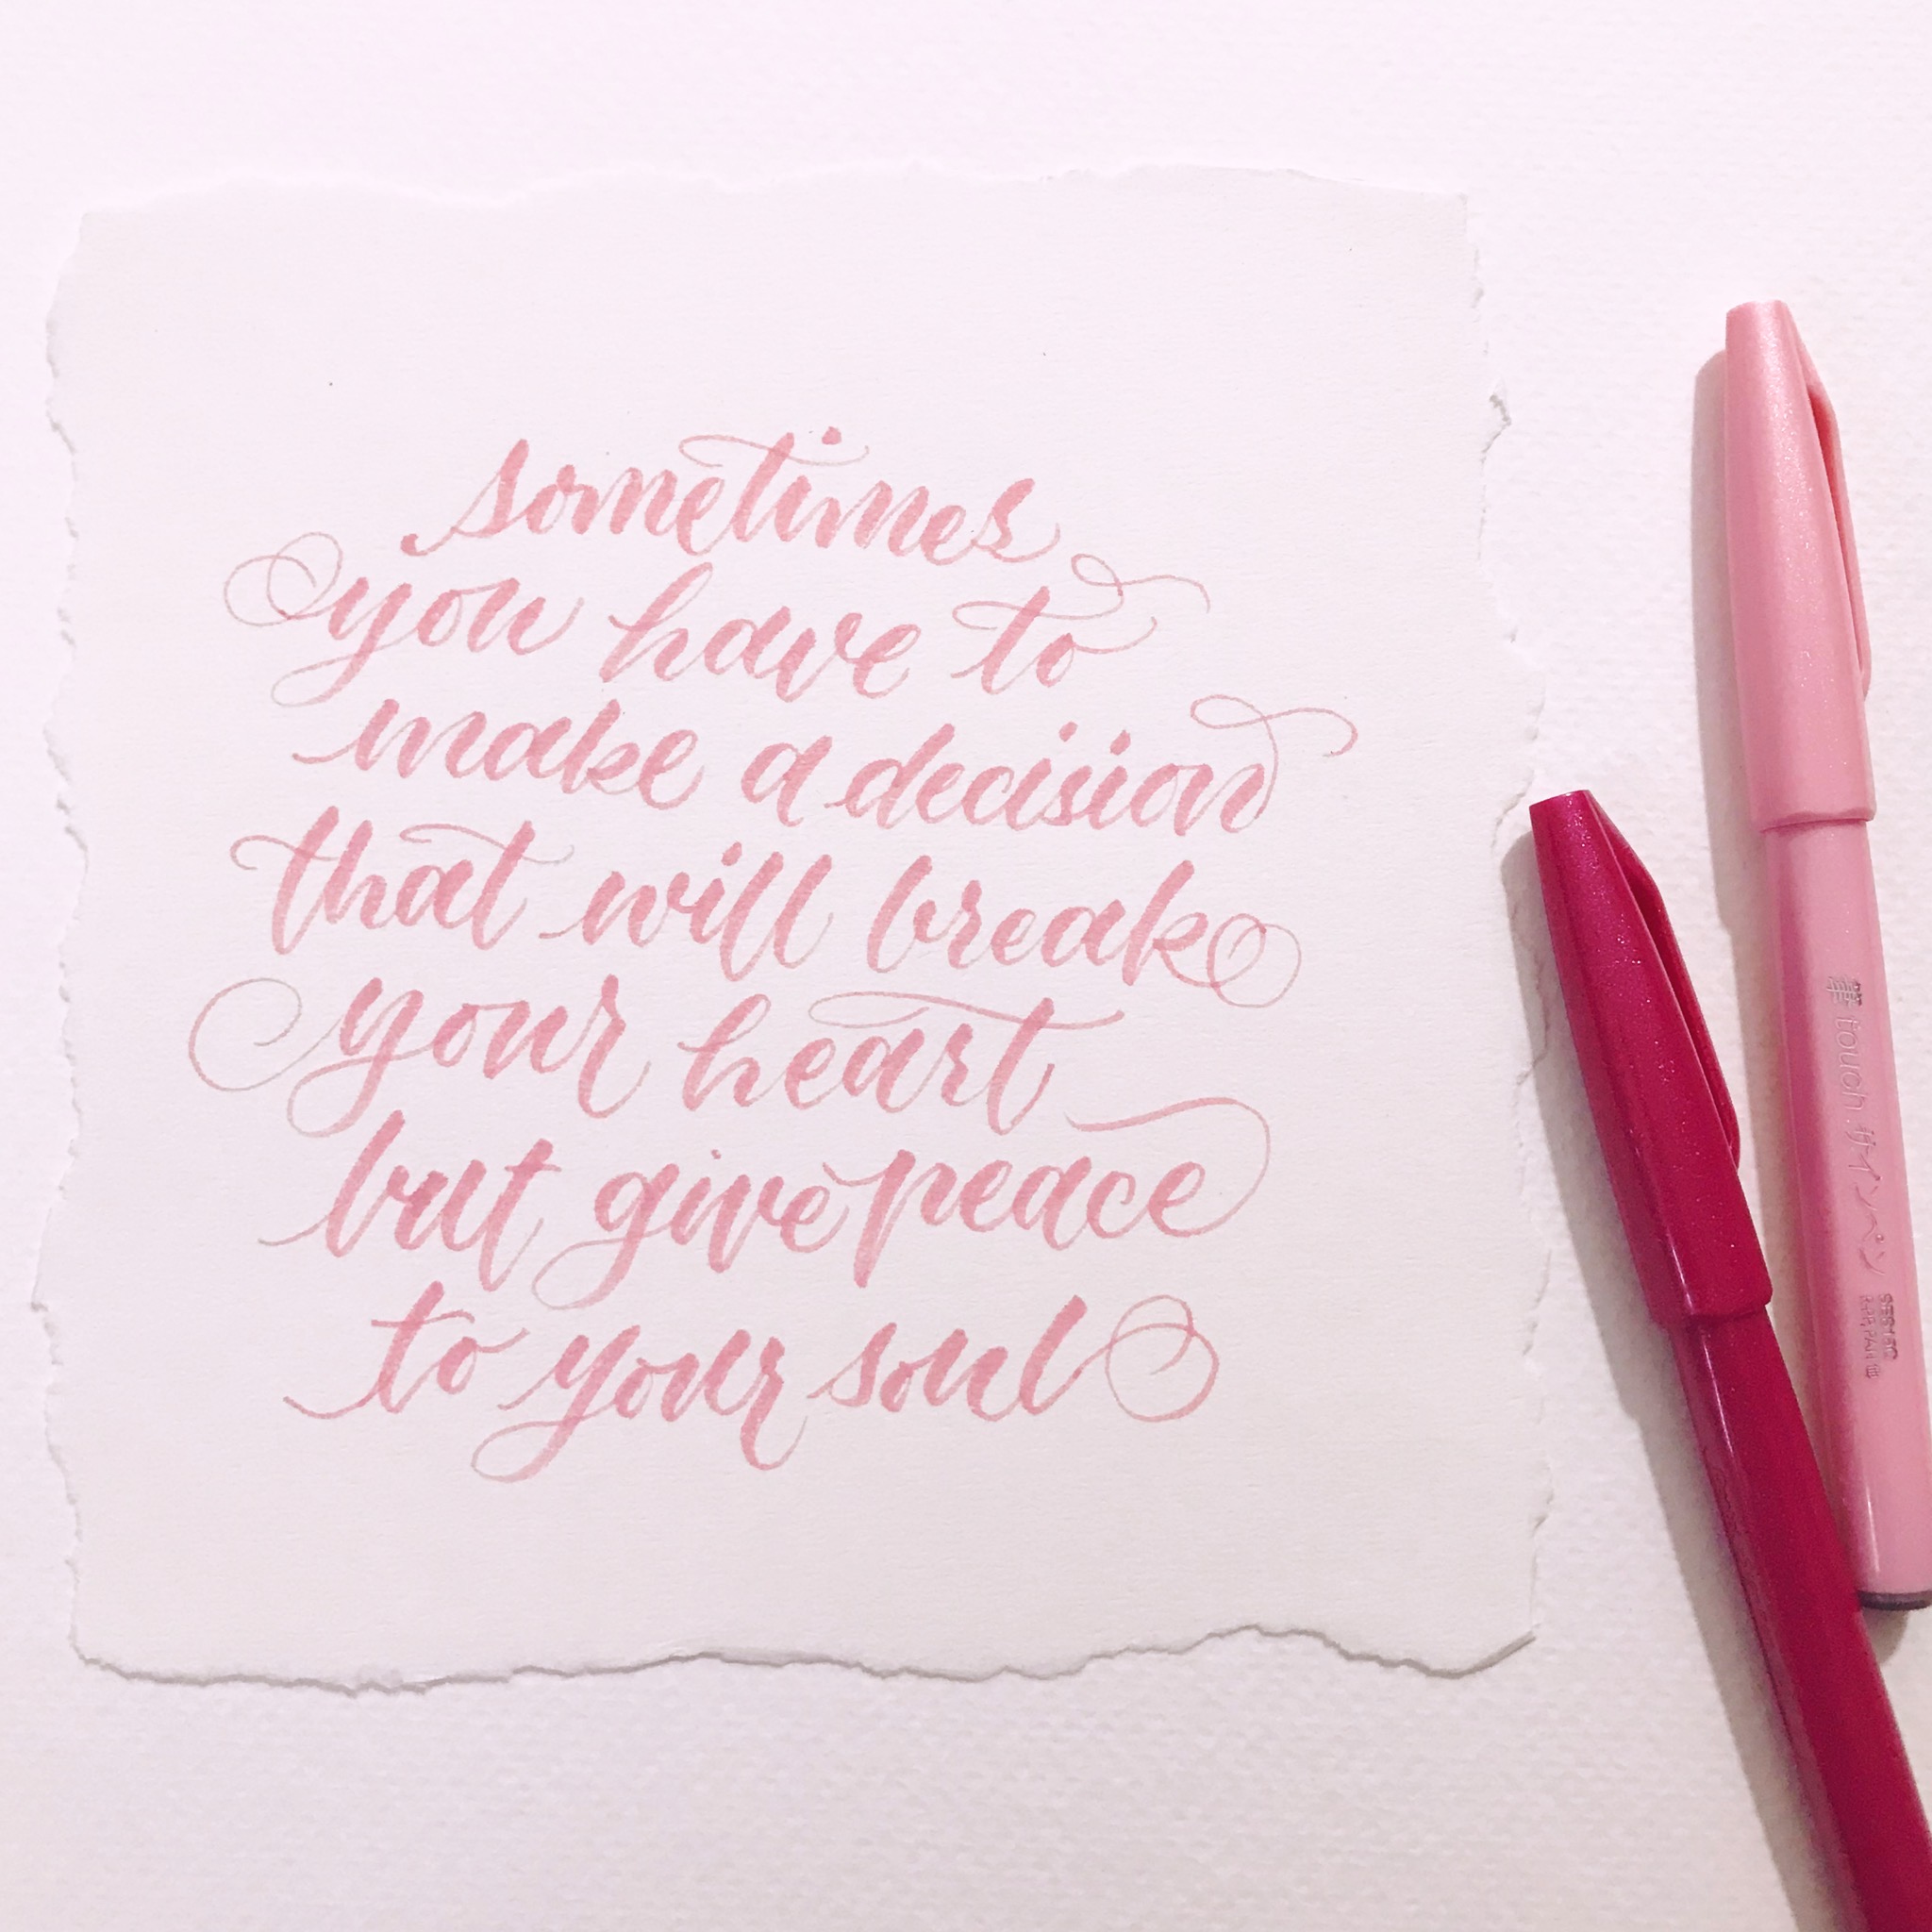 sometimes
you have to
make a decision
that will break
your heart
but give peace
to your soul
筆 touch サインペン
SES15C